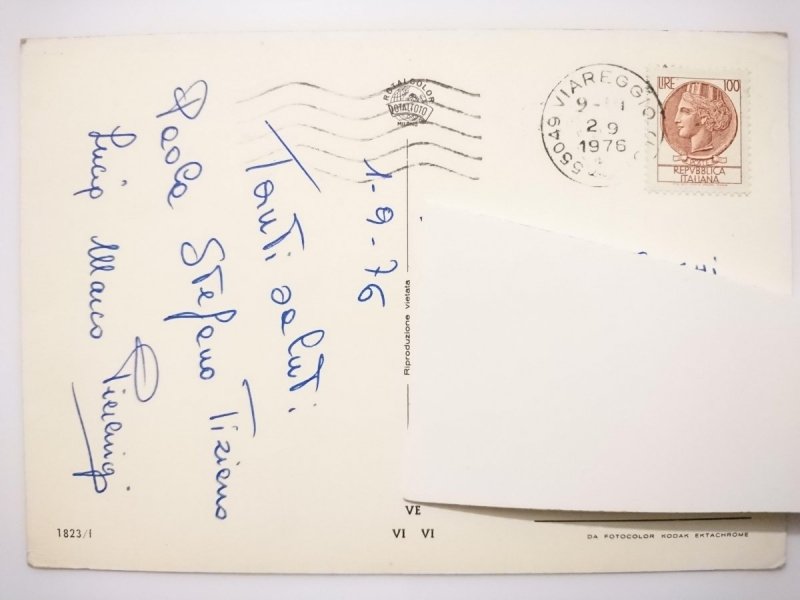 1-9-76
Tanti saluti
Paola Stefano Tiziano
Lucia Marco
ROTALCOLOR
ROTALFOTO
MILANO
55049 VIAREGGIO
2.9
1976
LIRE 100
REPVBBLICA
ITALIANA
Riproduzione vietata
VE
VI VI
1823/f
DA FOTOCOLOR KODAK EKTACHROME